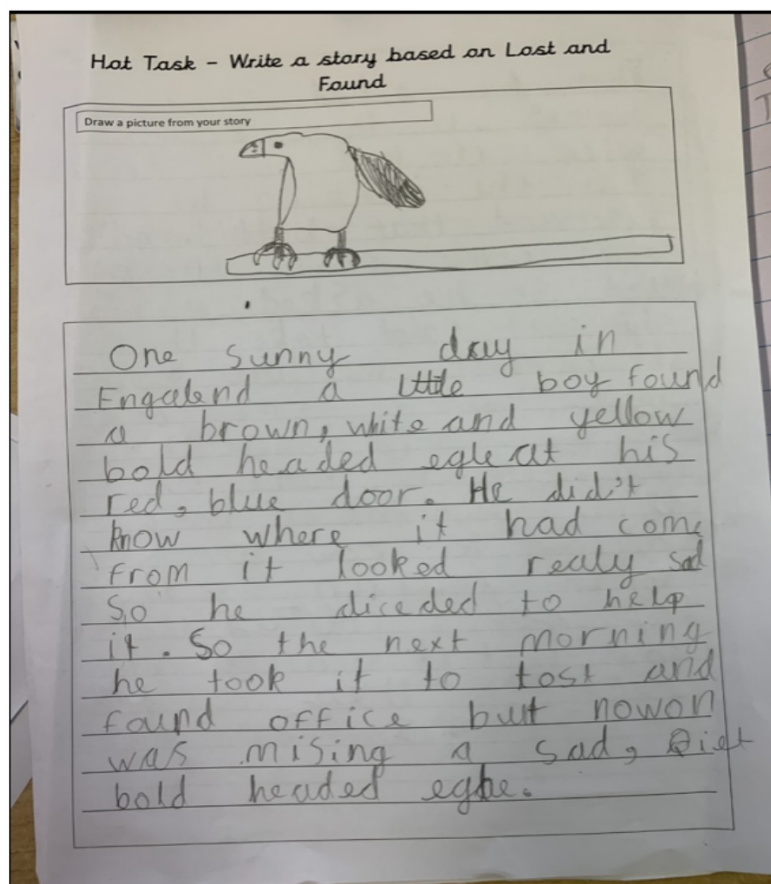 Hot Task - Write a story based on Lost and
Found
Draw a picture from your story
One sunny day in
Engalend a little boy found
a brown, white and yellow
bold headed egle at his
red, blue door. He did't
know where it had come
from it looked realy sad
So he diceded to help
it. So the next morning
he took it to tost and
found office but nowon
was mising a sad, Qiet
bold headed egle.